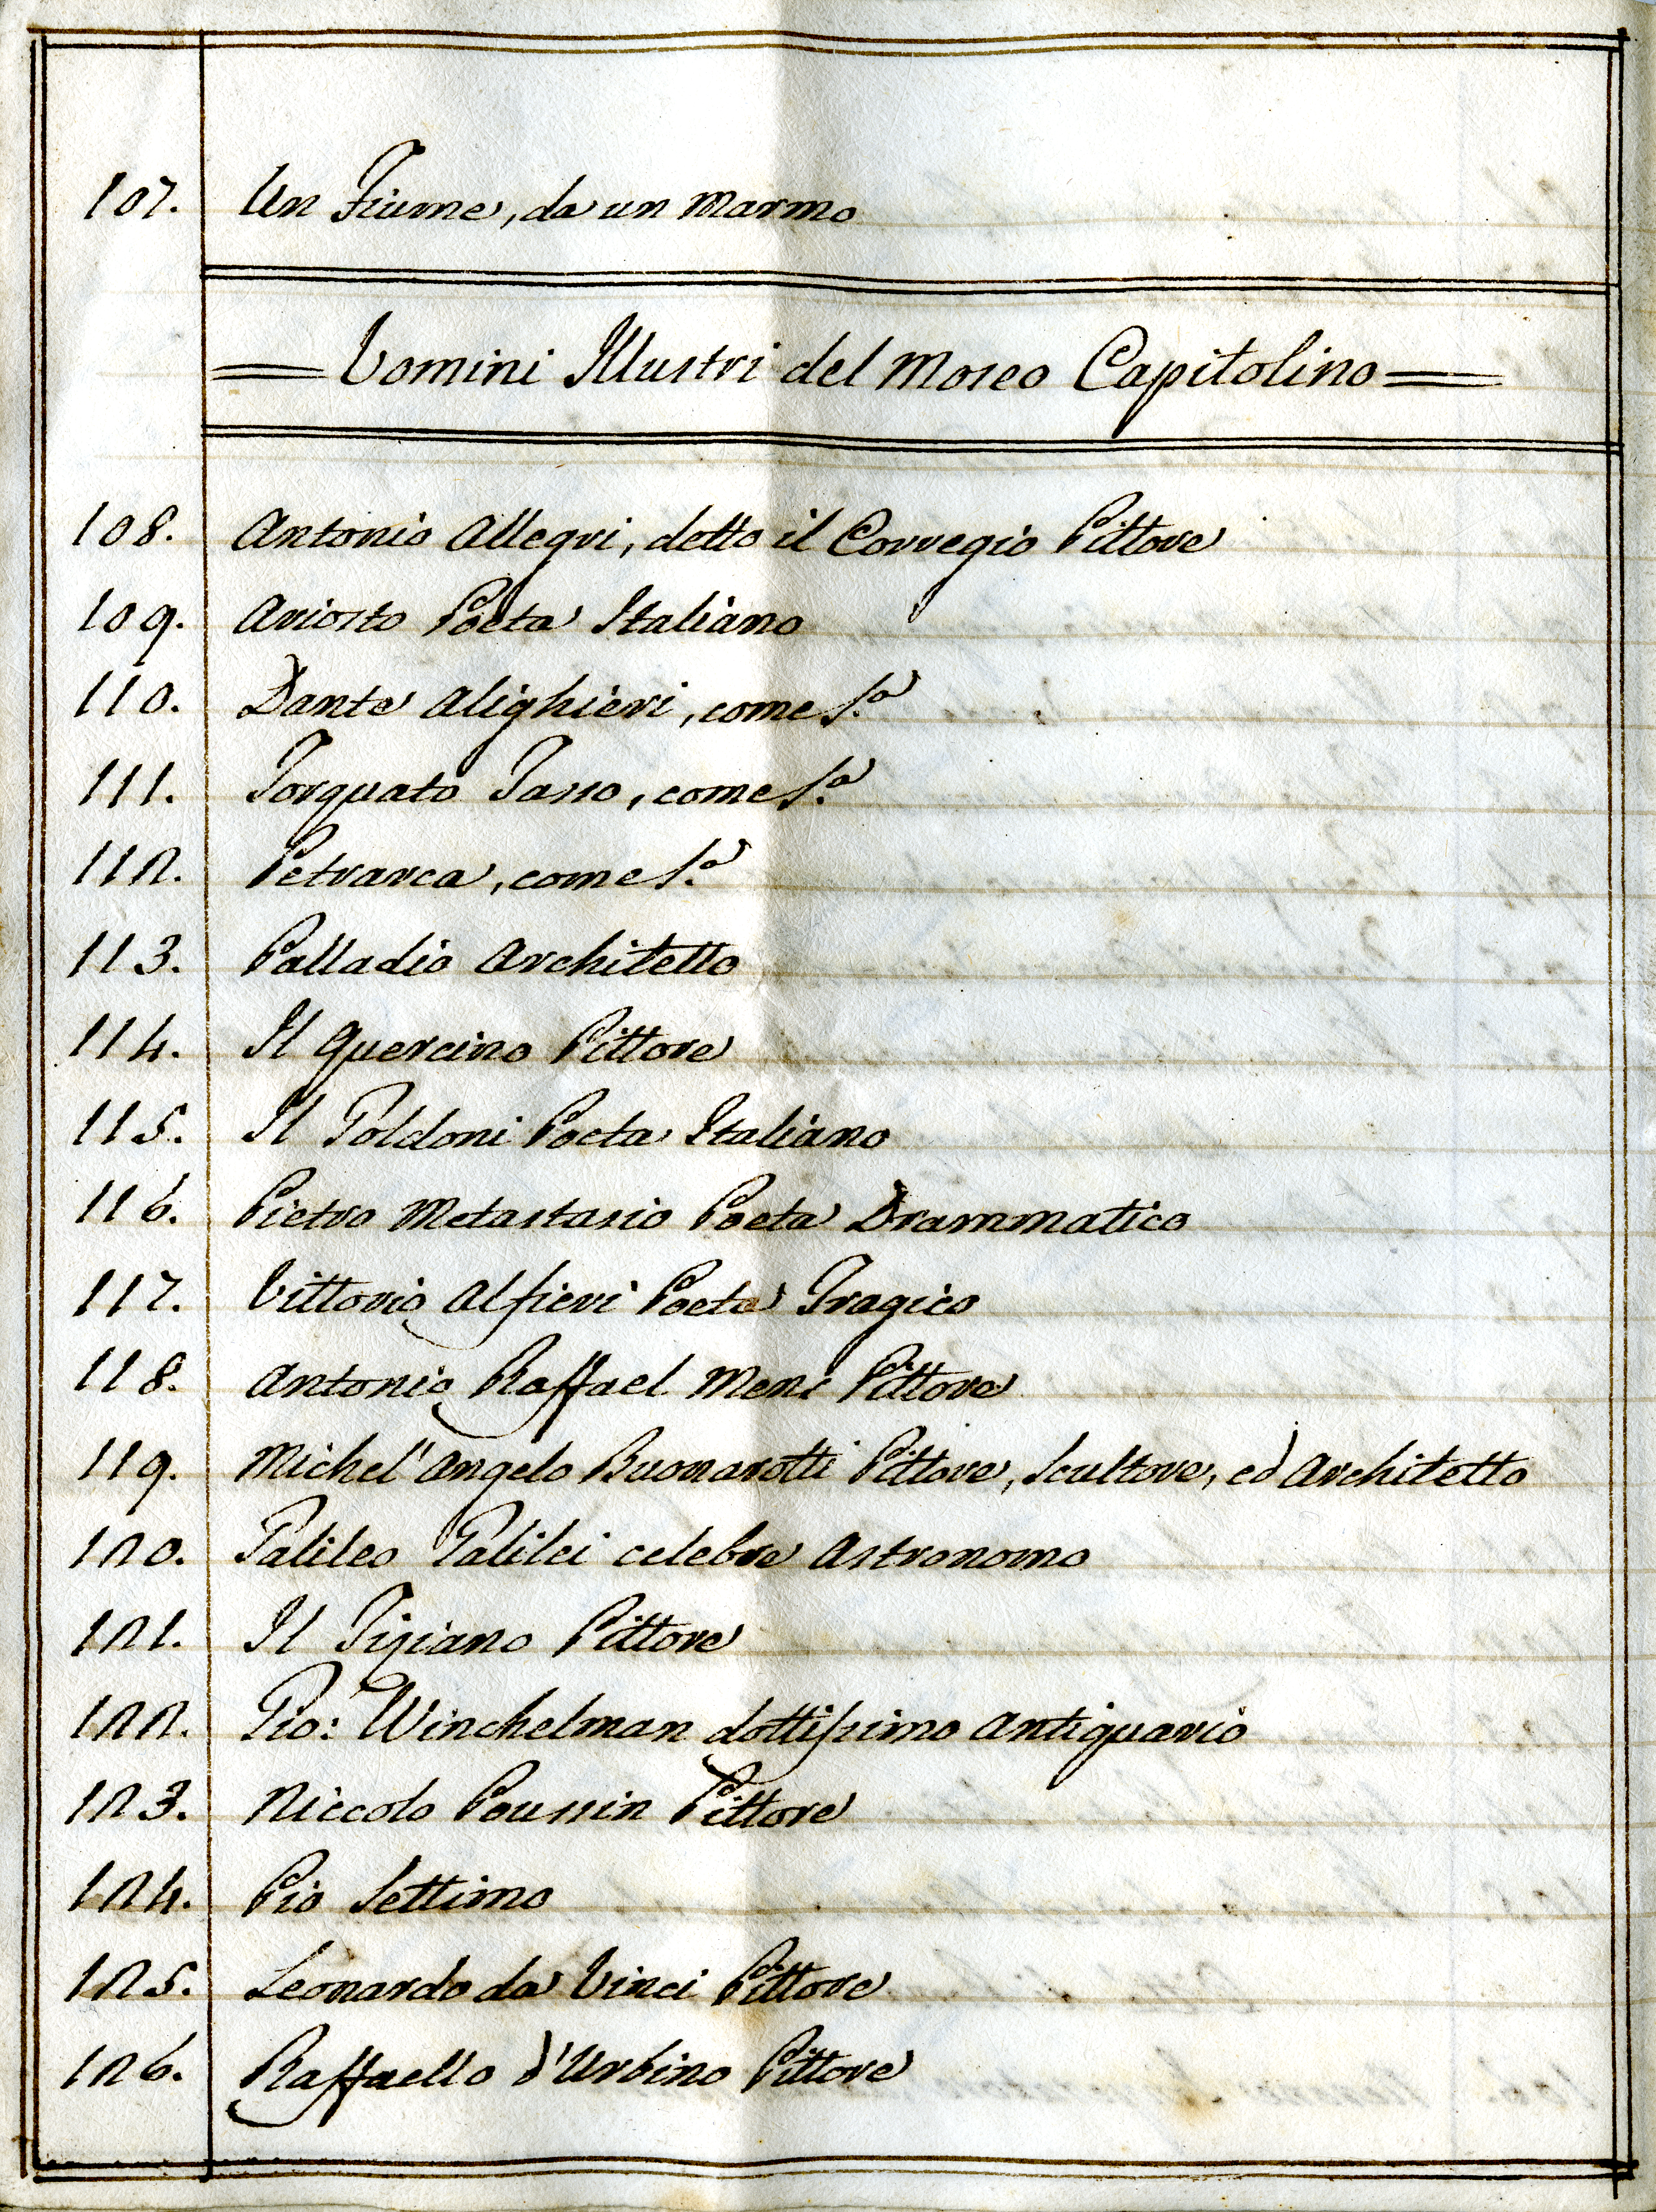 107. Un Fiume, da un Marmo
Vomini Illustri del Moseo Capitolino
108. Antonio Allegri, detto il Corregio Pittore
109. Ariosto Poeta Italiano
110. Dante Alighieri, come S.ª
111. Torquato Tasso, come S.ª
112. Petrarca, come S.ª
113. Palladio Architetto
114. Il Guercino Pittore
115. Il Goldoni Poeta Italiano
116. Pietro Metastasio Poeta Drammatico
117. Vittorio Alfieri Poeta Tragico
118. Antonio Raffael Meni Pittore
119. Michel'Angelo Buonarotti Pittore, Scultore, ed Architetto
120. Galileo Galilei celebre Astronomo
121. Il Tiziano Pittore
122. Gio: Winchelman dottissimo Antiquario
123. Niccolo Poussin Pittore
124. Pio Settimo
125. Leonardo da Vinci Pittore
126. Raffaello d'Urbino Pittore